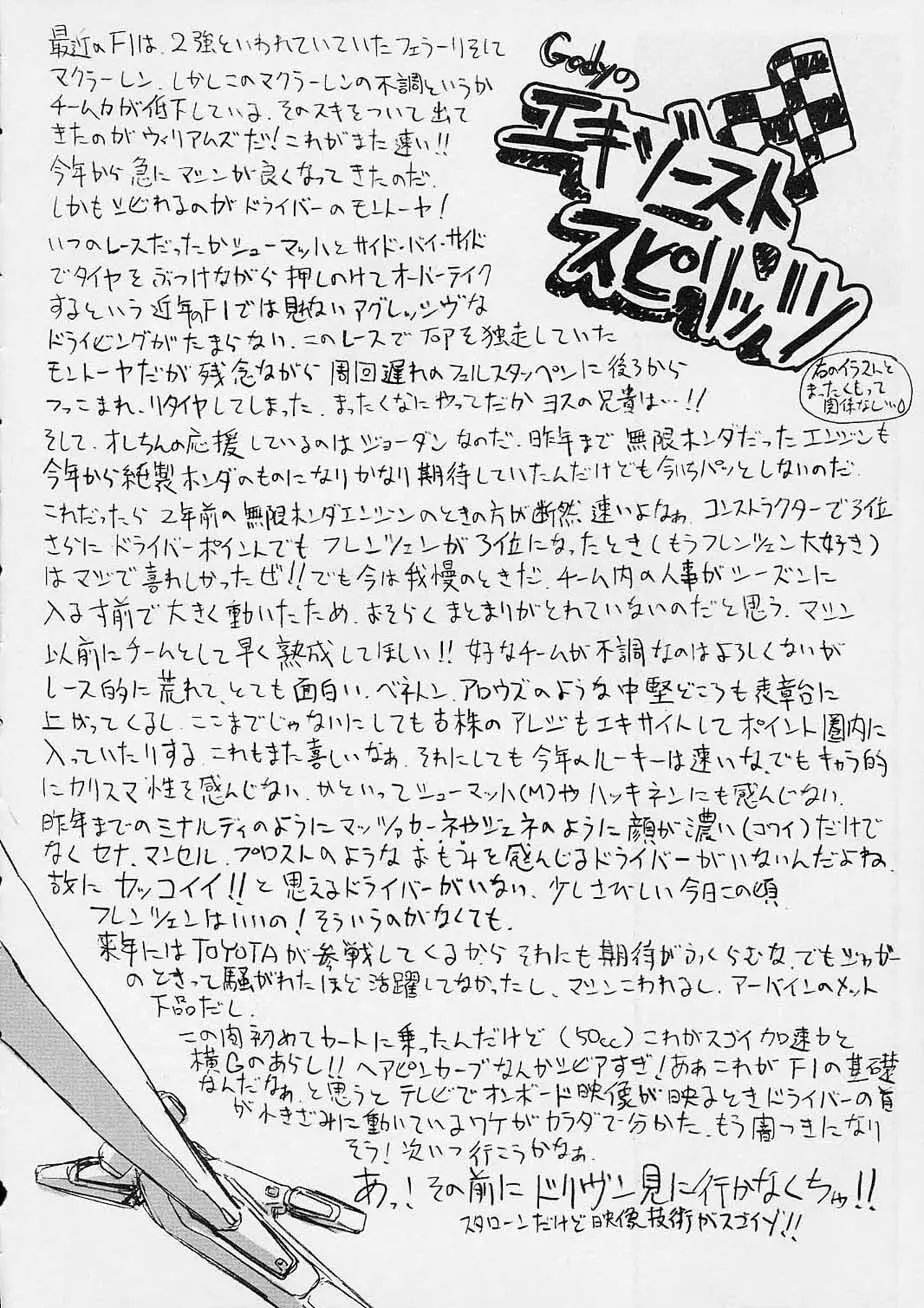 Godyの
エキゾースト
スピリッツ
右のイラストと
まったくもって
関係なし…。
最近のF1は、2強といわれていていたフェラーリそして
マクラーレン、しかしこのマクラーレンの不調というか
チーム力が低下している、そのスキをついて出て
きたのがウィリアムズだ!これがまた速い!!
今年から急にマシンが良くなってきたのだ、
しかもシビれるのがドライバーのモントーヤ!
いつのレースだったかシューマッハとサイド・バイ・サイド
でタイヤをぶつけながら押しのけてオーバーテイク
するという近年のF1では見ないアグレッシヴな
ドライビングがたまらない、このレースでTOPを独走していた
モントーヤだが残念ながら周回遅れのフェルスタッペンに後ろから
つっこまれ、リタイヤしてしまった、まったくなにやってだかヨスの兄貴は…!!
そして、オレちんの応援しているのはジョーダンなのだ、昨年まで無限ホンダだったエンジンも
今年から純製ホンダのものになりかなり期待していたんだけども今いちパッとしないのだ、
これだったら2年前の無限ホンダエンジンのときの方が断然速いよなぁ、コンストラクターで3位
さらにドライバーポイントでもフレンツェンが3位になったとき(もうフレンツェン大好き)
はマジで喜れしかったぜ!!でも今は我慢のときだ、チーム内の人事がシーズンに
入るす前で大きく動いたため、おそらくまとまりがとれていないのだと思う、マシン
以前にチームとして早く熟成してほしい!!好なチームが不調なのはよろしくないが
レース的に荒れて、とても面白い、ベネトン、アロウズのような中堅どころも表章台に
上がってくるし、ここまでじゃないにしても古株のアレジもエキサイトしてポイント圏内に
入っていたりする、これもまた喜しいなぁ、それにしても今年のルーキーは速いな、でもキャラ的
にカリスマ性を感んじない、かといってシューマッハ(M)やハッキネンにも感んじない、
昨年までのミナルディのようにマッツァカーネやジェネのように顔が濃い(コワイ)だけで
なくセナ、マンセル、プロストのようなおもみを感んじるドライバーがいないんだよね
故にカッコイイ!!と思えるドライバーがいない、少しさびしい今日この頃
フレンツェンはいいの!そういうのがなくても、
来年にはTOYOTAが参戦してくるからそれにも期待がふくらむな、でもジャガー
のときって騒がわたほど活躍してなかったし、マシンこわれるし、アーバインのメット
下品だし、
この間初めてカートに乗ったんだけど(50cc)これがスゴイ加速力と
横Gのあらし!!ヘアピンカーブなんかシビアすぎ!あぁこれがF1の基礎
なんだなぁ、と思うとテレビでオンボード映像が映るときドライバーの首
が小きざみに動いているワケがカラダで分かた、もう闇つきになり
そう!次いつ行こうかなぁ、
あっ!その前にドリヴン見に行かなくちゃ!!
スタローンだけど映像技術がスゴイゾ!!